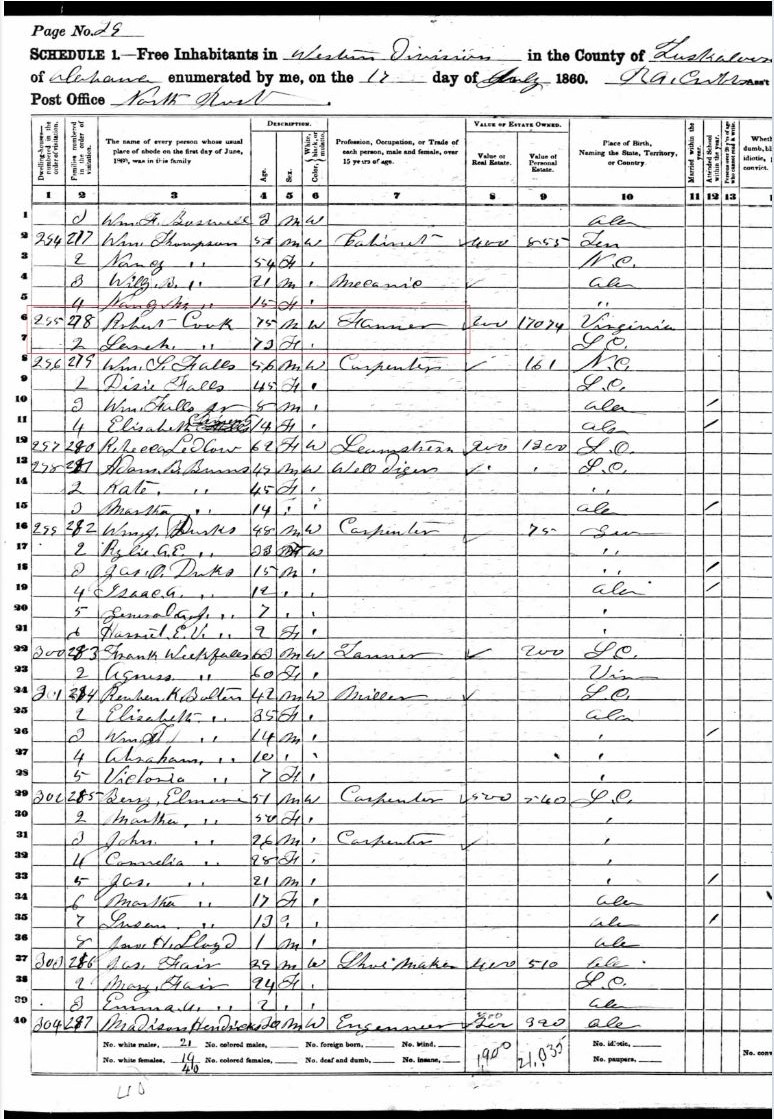 Page No. 29
SCHEDULE 1.—Free Inhabitants in Western Division in the County of Tuskaloosa
of Alabama enumerated by me, on the 17 day of July 1860. Ass't
Post Office North Port.
DESCRIPTION. VALUE OF ESTATE OWNED.
Dwelling-houses—numbered in the order of visitation. Families numbered in the order of visitation. The name of every person whose usual place of abode on the first day of June, 1860, was in this family Age. Sex. White, black, or mulatto. Color, Profession, Occupation, or Trade of each person, male and female, over 15 years of age. Value of Real Estate. Value of Personal Estate. Place of Birth, Naming the State, Territory, or Country. Married within the year. Attended School within the year. Wheth dumb, bl idiotic, convict.
1 2 3 4 5 6 7 8 9 10 11 12 13
1 3 Wm. F. Boswell 2 M W Ala
2 294 277 Wm. Thompson M W Cabinet 400 855 Ten
3 2 Nancy " 54 F N.C.
4 3 " 21 M Mecanic Ala
5 4 Nancy M " 15 F "
6 295 278 Robert Cook 75 M W 17074 Virginia
7 2 " 73 F S.C.
8 296 279 Wm. S. Falls 56 M W Carpenter 161 N.C.
9 2 Disie Falls 45 F S.C.
10 3 Wm. Falls jr 8 M Ala /
11 4 Elisabeth 14 F Ala /
12 297 280 Rebecca Ledlow 62 F W 200 1200 S.C.
13 298 281 Adam B. Burns 49 M W Well Diger S.C.
14 2 Kate " 45 F "
15 3 Martha " 14 Ala /
16 299 282 Wm. J. Duks 48 M W Carpenter 75
17 2 " F W "
18 3 Jas. O. Duks 15 M " /
19 4 Isaac A. " 12 Ala /
20 5 " 7
21 6 Harriet E. V. " 2 F
22 300 283 63 M W Tanner 200 S.C.
23 2 Agness " 60 F
24 301 284 Reuben K. Bolten 42 M W Miller S.C.
25 2 Elisabeth " 35 F Ala
26 3 " 14 M /
27 4 Abraham " 10
28 5 Victoria " 7 F
29 302 285 Berry Elmore 51 M W Carpenter 500 540 S.C.
30 2 Martha " 50 F
31 3 John " 26 M Carpenter
32 4 Cornelia " 28 F
33 5 Jas. " 21 M /
34 6 Martha " 17 F Ala
35 7 Susan " 13 Ala /
36 8 Lloyd 1 M Ala
37 303 286 Jas. Fair 29 M W Shoe Maker 400 510 Ala
38 2 Mary Fair 24 F S.C.
39 3 Emma " 2 Ala
40 304 287 Madison M W Engenneer 320 Ala
No. white males, 21 No. colored males, No. foreign born, No. blind, 1,900 21,035 No. idiotic,
No. white females, 19 No. colored females, No. deaf and dumb, No. insane, No. paupers, No. conv
40
40